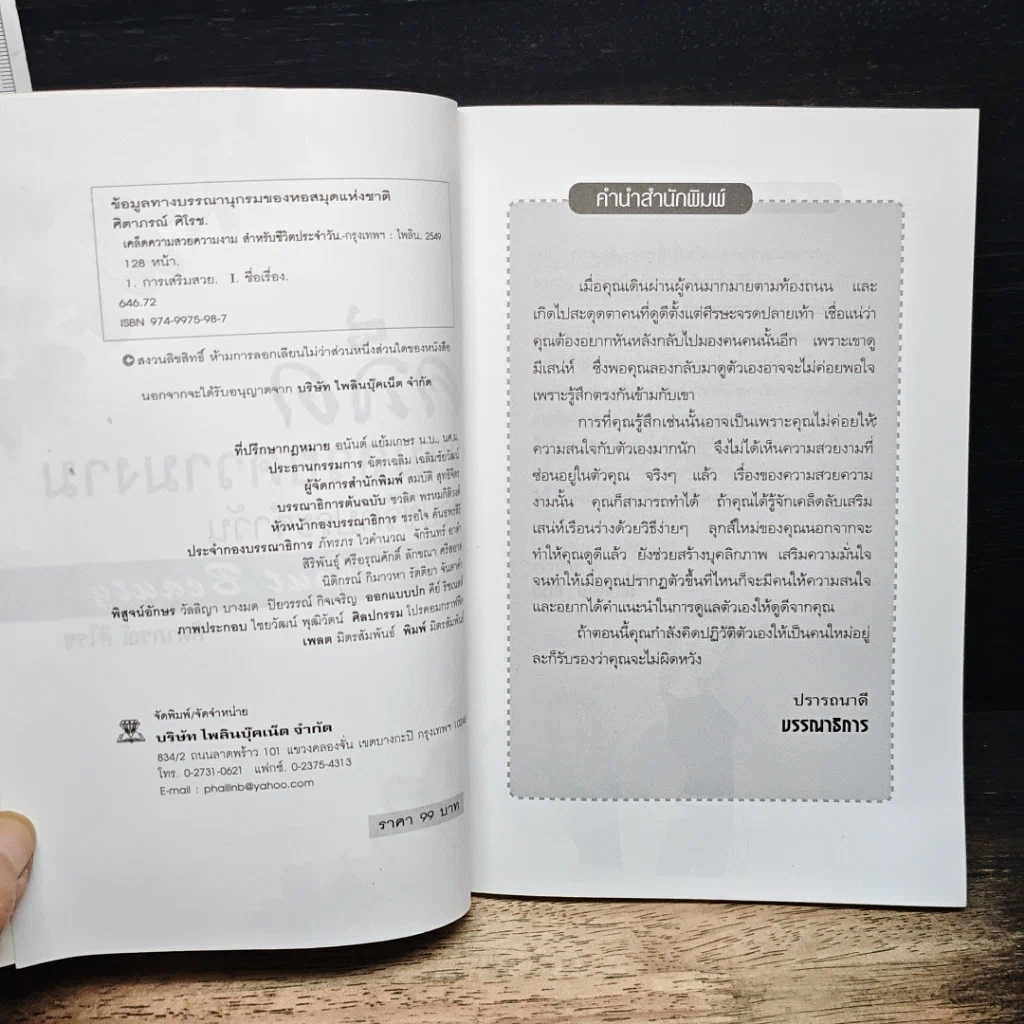 ข้อมูลทางบรรณานุกรมของหอสมุดแห่งชาติ
ศิตาภรณ์ ศิโรช.
เคล็ดความสวยความงาม สำหรับชีวิตประจำวัน.-กรุงเทพฯ : ไพลิน, 2549.
128 หน้า.
1. การเสริมสวย. I. ชื่อเรื่อง.
646.72
ISBN 974-9975-98-7
© สงวนลิขสิทธิ์ ห้ามการลอกเลียนไม่ว่าส่วนหนึ่งส่วนใดของหนังสือ
นอกจากจะได้รับอนุญาตจาก บริษัท ไพลินบุ๊คเน็ต จำกัด
ที่ปรึกษากฎหมาย อนันต์ แย้มเกษร น.บ., นศ.ม.
ประธานกรรมการ ฉัตรเฉลิม เฉลิมชัยวัฒน์
ผู้จัดการสำนักพิมพ์ สมบัติ
บรรณาธิการต้นฉบับ ชวลิต
หัวหน้ากองบรรณาธิการ ชรอใจ
ประจำกองบรรณาธิการ ภัทรภร ไวคำนวณ จักรินทร์
สิริพันธุ์ ศรีอรุณศักดิ์ ลักขณา
นิติกรณ์ กิมาวหา รัตติยา
พิสูจน์อักษร วัลลิญา บางมด ปิยวรรณ์ กิจเจริญ ออกแบบปก คีย์
ภาพประกอบ ไชยวัฒน์ พุฒิวัตน์ ศิลปกรรม โปรคอมกราฟฟิค
เพลต มิตรสัมพันธ์ พิมพ์ มิตรสัมพันธ์
จัดพิมพ์/จัดจำหน่าย
บริษัท ไพลินบุ๊คเน็ต จำกัด
834/2 ถนนลาดพร้าว 101 แขวงคลองจั่น เขตบางกะปิ กรุงเทพฯ
โทร. 0-2731-0621 แฟกซ์. 0-2375-4313
E-mail : phailinb@yahoo.com
ราคา 99 บาท
คำนำสำนักพิมพ์
เมื่อคุณเดินผ่านผู้คนมากมายตามท้องถนน และ
เกิดไปสะดุดตาคนที่ดูดีตั้งแต่ศีรษะจรดปลายเท้า เชื่อแน่ว่า
คุณต้องอยากหันหลังกลับไปมองคนคนนั้นอีก เพราะเขาดู
มีเสน่ห์ ซึ่งพอคุณลองกลับมาดูตัวเองอาจจะไม่ค่อยพอใจ
เพราะรู้สึกตรงกันข้ามกับเขา
การที่คุณรู้สึกเช่นนั้นอาจเป็นเพราะคุณไม่ค่อยให้
ความสนใจกับตัวเองมากนัก จึงไม่ได้เห็นความสวยงามที่
ซ่อนอยู่ในตัวคุณ จริงๆ แล้ว เรื่องของความสวยความ
งามนั้น คุณก็สามารถทำได้ ถ้าคุณได้รู้จักเคล็ดลับเสริม
เสน่ห์เรือนร่างด้วยวิธีง่ายๆ ลุกส์ใหม่ของคุณนอกจากจะ
ทำให้คุณดูดีแล้ว ยังช่วยสร้างบุคลิกภาพ เสริมความมั่นใจ
จนทำให้เมื่อคุณปรากฏตัวขึ้นที่ไหนก็จะมีคนให้ความสนใจ
และอยากได้คำแนะนำในการดูแลตัวเองให้ดูดีจากคุณ
ถ้าตอนนี้คุณกำลังคิดปฏิวัติตัวเองให้เป็นคนใหม่อยู่
ละก็รับรองว่าคุณจะไม่ผิดหวัง
ปรารถนาดี
บรรณาธิการ